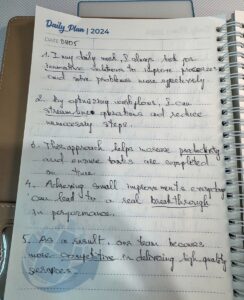 Daily Plan | 2024
DATE 08/05
1. I my daily work, I always look for
innovative solutions to improve processes
and solve problems more effectively
2. By optimizing workflows, I can
streamline operations and reduce
unnecessary steps.
3. This approach helps increase productivity
and ensure tasks are completed
on time.
4. Achieving small improvements everyday
can lead to a real breakthrough
in performance.
5. As a result, our team becomes
more competitive in delivering high-quality
services.